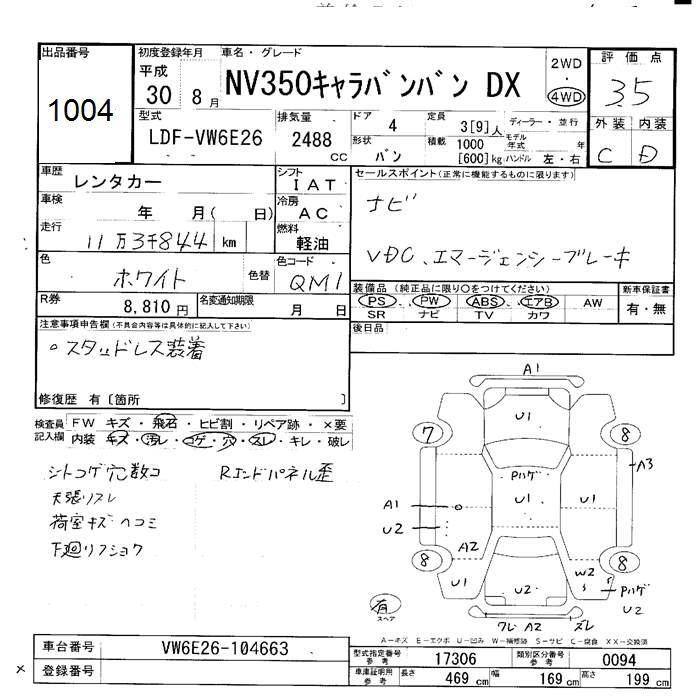 出品番号 初度登録年月 車名・グレード 評価点
1004 平成 30 8月 NV350キャラバンバン DX 2WD・4WD 3.5
型式 排気量 ドア 定員 ディーラー・並行 外装 内装
LDF-VW6E26 2488 CC 4 3[9]人 モデル年式 年 C D
形状 バン 積載 1000 [600]kg ハンドル 左・右
車歴 レンタカー シフト IAT セールスポイント(正常に機能するものに限ります)
車検 年 月( 日) 冷房 AC ナビ
走行 11万3千844 km 燃料 軽油 VDC、エマージェンシーブレーキ
色 ホワイト 色替 色コード QM1
装備品 (純正品に限り○をつけてください) 新車保証書
R券 8,810円 名変通知期限 月 日 PS PW ABS エアB AW 有・無
SR ナビ TV カワ
注意事項申告欄(不具合内容等は具体的に記入して下さい) 後日品
○スタッドレス装着
修復歴 有〔箇所 〕
検査員記入欄 FW キズ・飛石・ヒビ割・リペア跡・×要
内装 キズ・汚レ・コゲ・穴・スレ・キレ・破レ
シトコゲ穴数コ Rエンドパネル歪
天張リスレ
荷室キズヘコミ
下廻リフショク
A1
U1
7 8
A3
Pハゲ
A1 U1 U1
U2
A2
8 8
U1 U2 W2 Pハゲ
U2
有 スペア
ワレ A2 ズレ
A-キズ E-エクボ U-凹み W-補修跡 S-サビ C-腐食 XX-交換済
車台番号 VW6E26-104663 型式指定番号 参考 17306 類別区分番号 参考 0094
× 登録番号 車庫証明用 参考 長さ 469 cm 幅 169 cm 高さ 199 cm